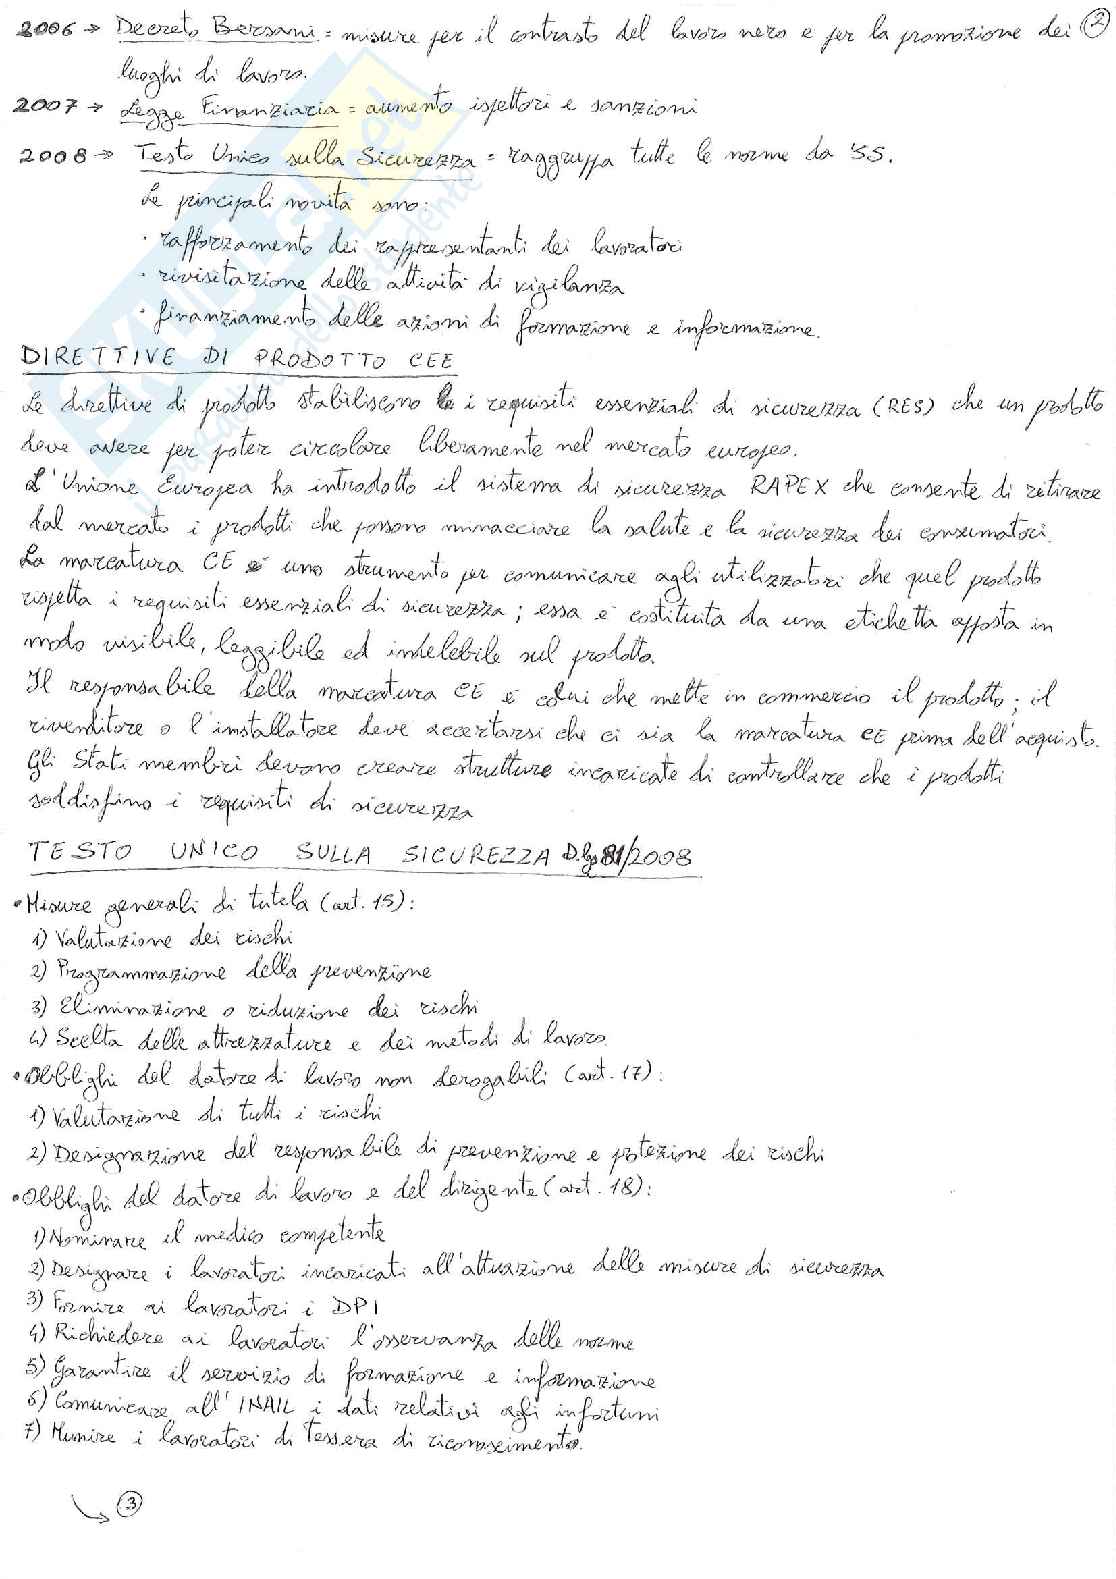 2006 → Decreto Bersani = misure per il contrasto del lavoro nero e per la promozione dei ②
luoghi di lavoro.
2007 → Legge Finanziaria = aumento ispettori e sanzioni
2008 → Testo Unico sulla Sicurezza = raggruppa tutte le norme da '55.
Le principali novità sono:
· rafforzamento dei rappresentanti dei lavoratori
· rivisitazione delle attività di vigilanza
· finanziamento delle azioni di formazione e informazione.
DIRETTIVE DI PRODOTTO CEE
Le direttive di prodotto stabiliscono i requisiti essenziali di sicurezza (RES) che un prodotto
deve avere per poter circolare liberamente nel mercato europeo.
L'Unione Europea ha introdotto il sistema di sicurezza RAPEX che consente di ritirare
dal mercato i prodotti che possono minacciare la salute e la sicurezza dei consumatori.
La marcatura CE è uno strumento per comunicare agli utilizzatori che quel prodotto
rispetta i requisiti essenziali di sicurezza; essa è costituita da una etichetta apposta in
modo visibile, leggibile ed indelebile sul prodotto.
Il responsabile della marcatura CE è colui che mette in commercio il prodotto; il
rivenditore o l'installatore deve accertarsi che ci sia la marcatura CE prima dell'acquisto.
Gli Stati membri devono creare strutture incaricate di controllare che i prodotti
soddisfino i requisiti di sicurezza
TESTO UNICO SULLA SICUREZZA D.lgs 81/2008
• Misure generali di tutela (art. 15):
1) Valutazione dei rischi
2) Programmazione della prevenzione
3) Eliminazione o riduzione dei rischi
4) Scelta delle attrezzature e dei metodi di lavoro.
• Obblighi del datore di lavoro non derogabili (art. 17):
1) Valutazione di tutti i rischi
2) Designazione del responsabile di prevenzione e protezione dei rischi
• Obblighi del datore di lavoro e del dirigente (art. 18):
1) Nominare il medico competente
2) Designare i lavoratori incaricati all'attuazione delle misure di sicurezza
3) Fornire ai lavoratori i DPI
4) Richiedere ai lavoratori l'osservanza delle norme
5) Garantire il servizio di formazione e informazione
6) Comunicare all'INAIL i dati relativi agli infortuni
7) Munire i lavoratori di tessera di riconoscimento.
→ ③